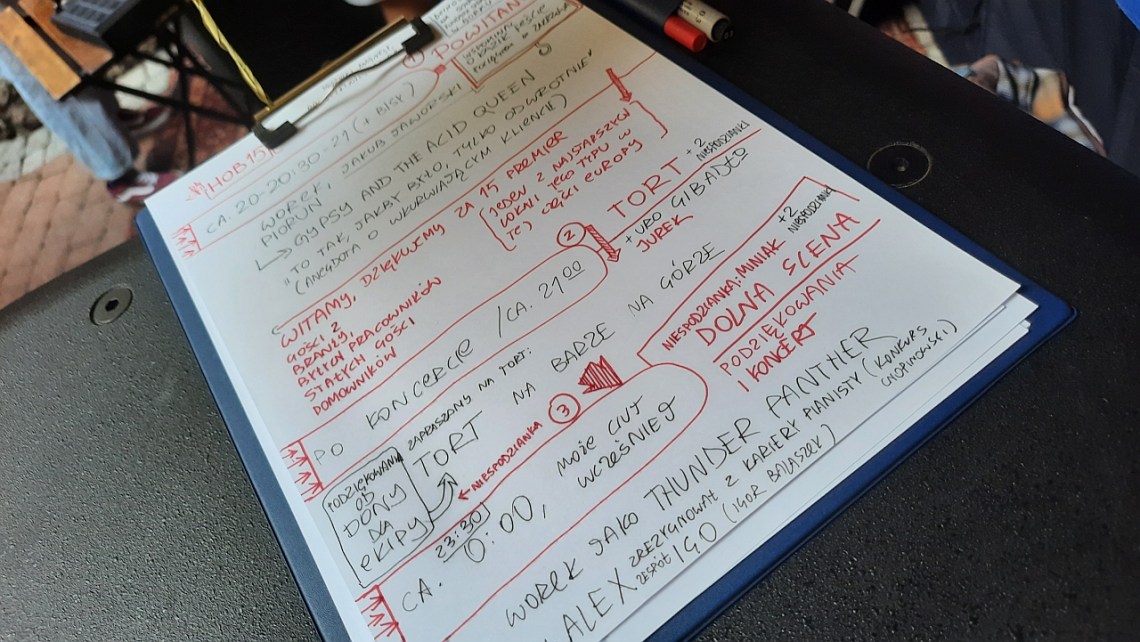 ① POWITANI
HOB 15!
CA. 20-20:30-21 (+ BISY)
WOREK, JAKUB JAWORSKI
PIORUN
↳ GYPSY AND THE ACID QUEEN
"TO TAK, JAKBY BYŁO, TYLKO ODWROTNIE"
(ANEGDOTA O WKURWIAJĄCYM KLIENCIE)
WITAMY, DZIĘKUJEMY ZA 15 PREMIER
[JEDEN Z NAJSTARSZYCH
LOKALI JEGO TYPU W
TEJ CZĘŚCI EUROPY]
GOŚCI Z
BRANŻY,
BYŁYCH PRACOWNIKÓW
STAŁYCH GOŚCI
DOMOWNIKÓW
② TORT +2
NIESPODZIANKI
+ URO GIBADŁO
JUREK
PO KONCERCIE / CA. 21:00
ZAPRASZAMY NA TORT:
TORT NA BARZE NA GÓRZE
PODZIĘKOWANIA
OD
DONY
DLA
EKIPY
← NIESPODZIANKA
③
NIESPODZIANKA: MINIAK +2
NIESPODZIANKI
DOLNA SCENA
PODZIĘKOWANIA
I KONCERT
23:30
CA. 0:00, MOŻE CIUT
WCZEŚNIEJ
WOREK JAKO THUNDER PANTHER
ALEX ZREZYGNOWAŁ Z KARIERY PIANISTY (KONKURS
CHOPINOWSKI)
ZESPÓŁ IGO (IGOR BALASZEK)